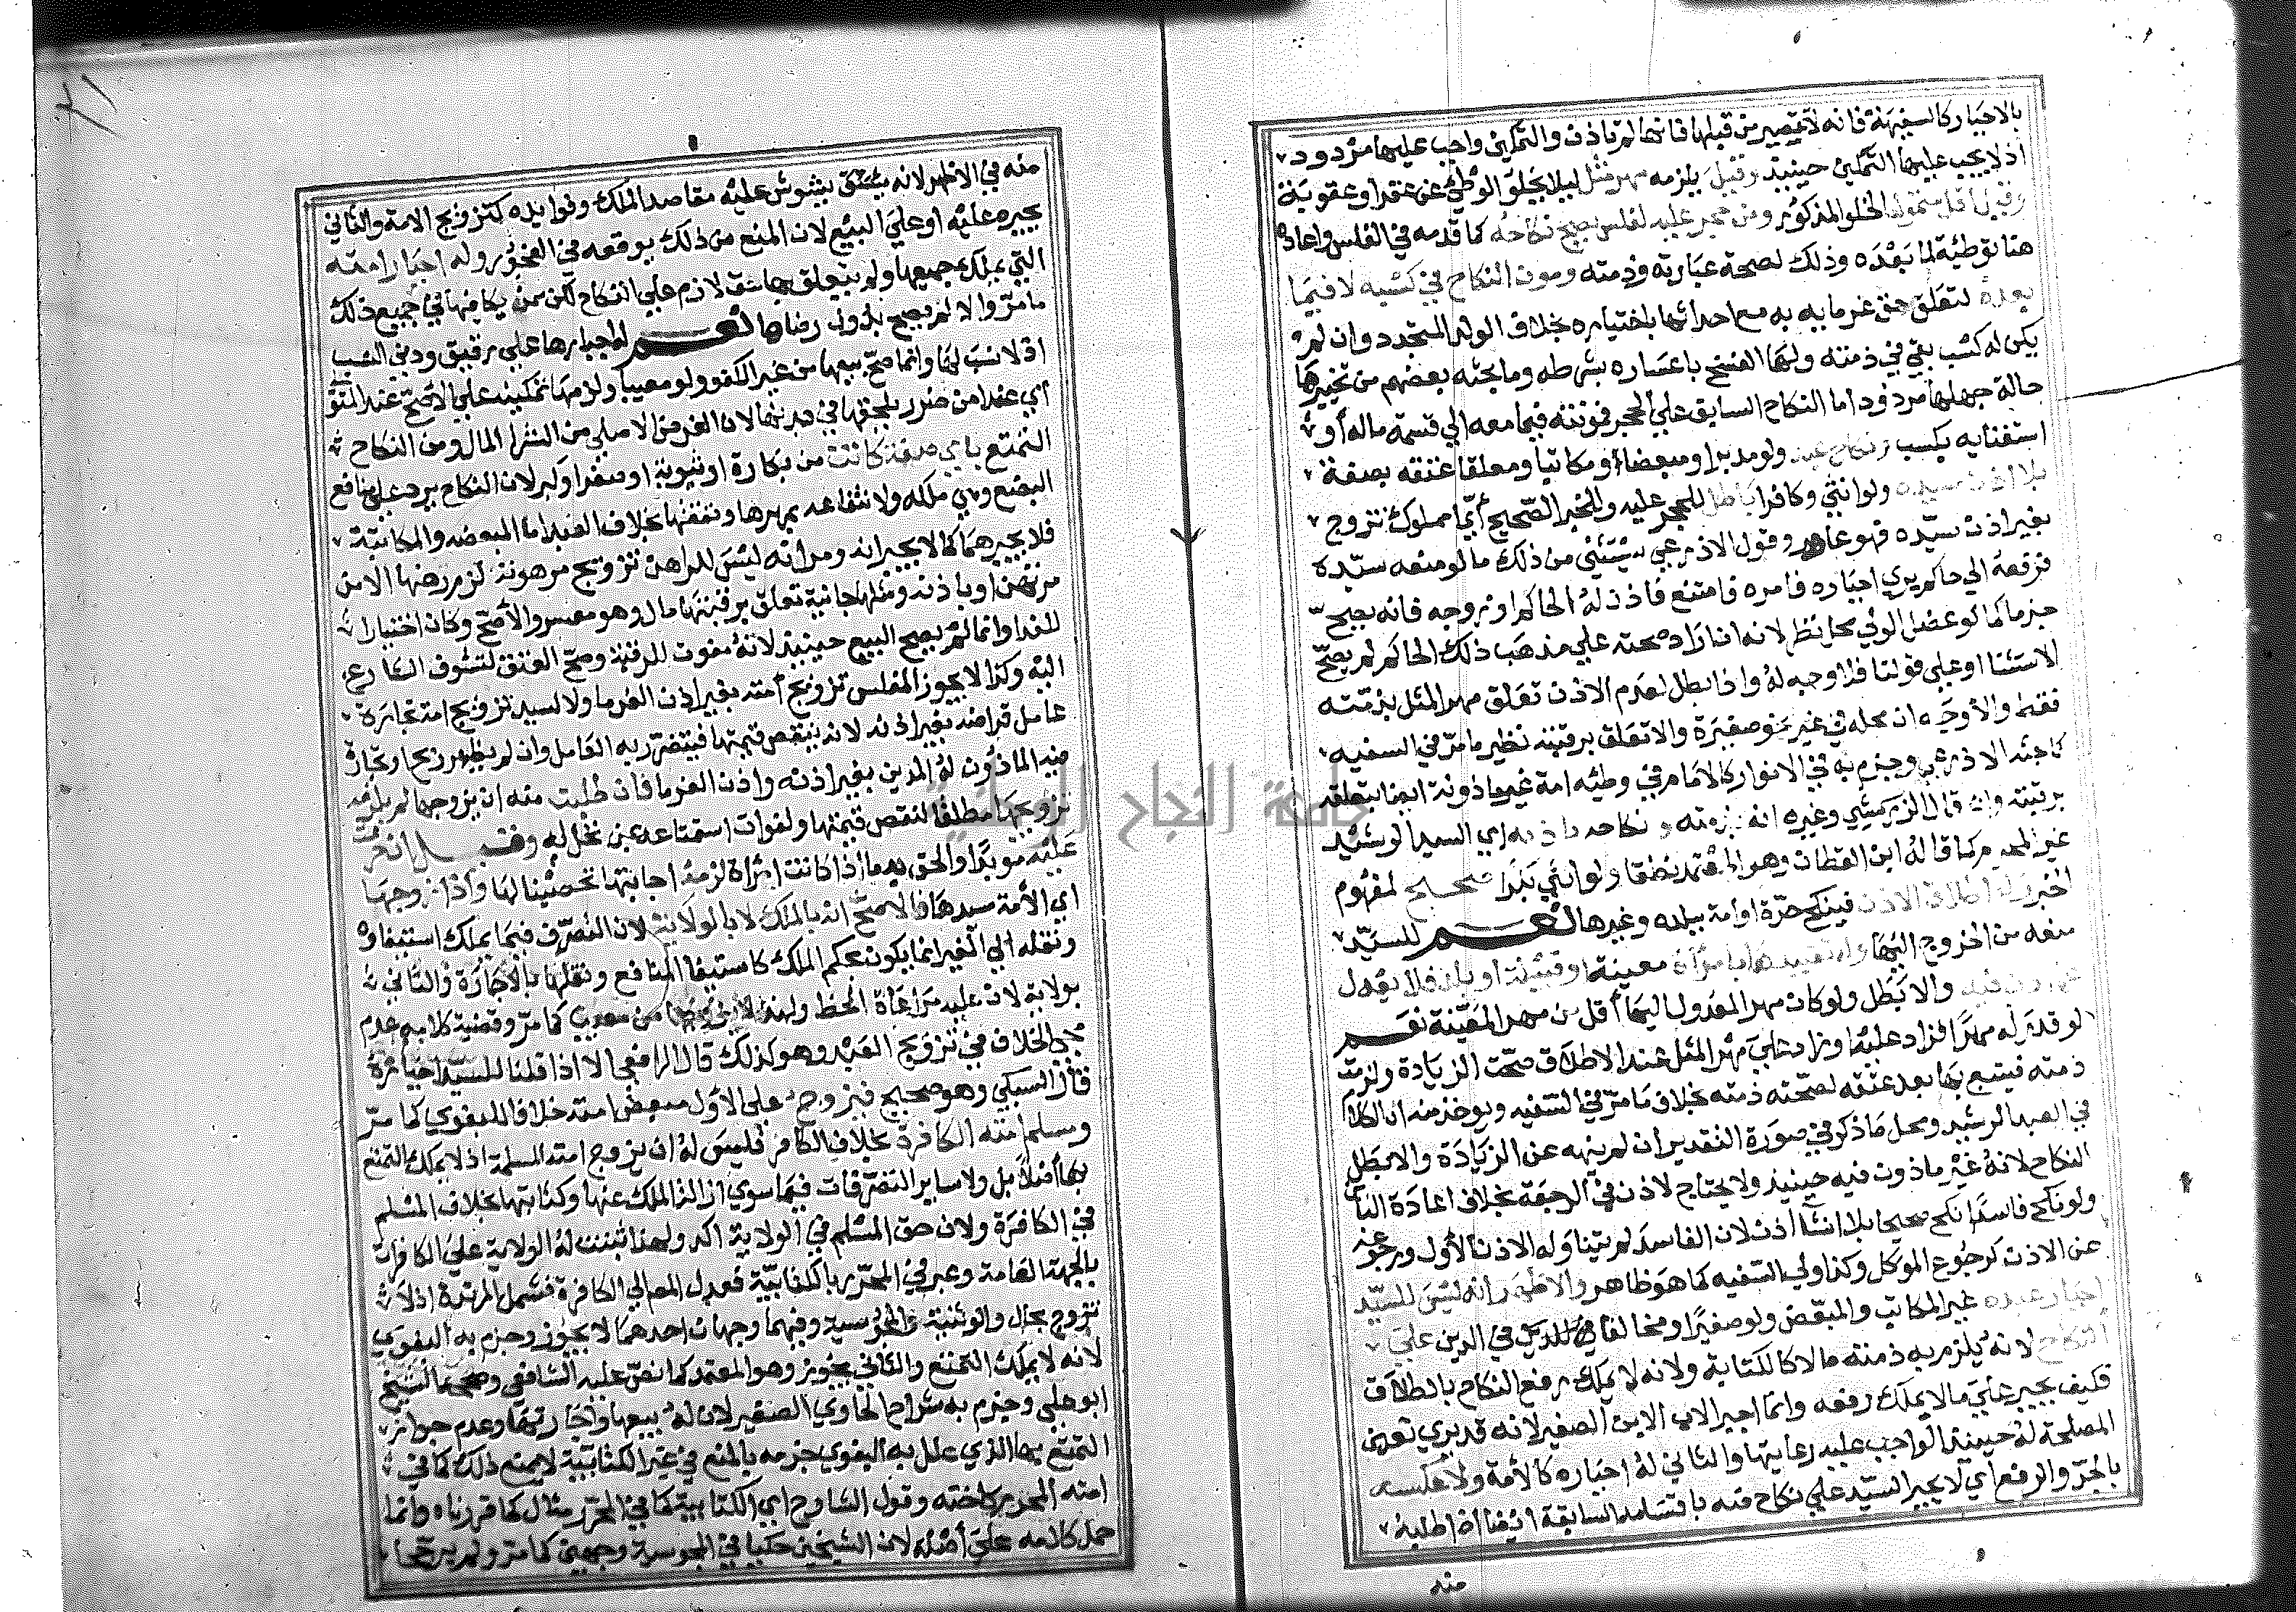 بالاجبار كالسفيهة فانه لا تقصير من قبلها فانها لم تاذن والتمكين واجب عليها مردود
اذ لا يجب عليها التمكين حينيذ وقيل يلزمه مهر مثل ليلا يخلو الوطئ عن عقد او عقوبة
وقيل اقل متمول الخلو المذكور ومن حجر عليه لفلس يصح نكاحه كما قدمه في الفلس واعاده
هنا توطية لما بعده وذلك لصحة عبارته وذمته ومون النكاح في كسبه لا فيما
بعده لتعلق حق غرمايه به مع احداثها باختياره بخلاف الولد المتجدد وان لم
يكن له كسب بقي في ذمته ولها الفسخ باعساره بشرطه وما بحثه بعضهم من تخييرها
حالة جهلها مردود اما النكاح السابق علي الحجر فمونته فيما معه الي قسمة ماله او
استغنايه بكسب ونكاح عبد ولو مدبرا ومبعضا او مكاتبا ومعلقا عتقه بصفة
بلا اذن سيده ولو انثي وكافرا باطل للحجر عليه وللخبر الصحيح أيما مملوك تزوج
بغير اذن سيده فهو عاهر وقول الاذرعي يستثني من ذلك ما لو منعه سيده
فرفعه الي حاكم يري اجباره فامره فامتنع فاذن له الحاكم او زوجه فانه يصح
جزما كما لو عضل الولي محل نظر لانه ان اراد صحته علي مذهب ذلك الحاكم لم يصح
الاستثنا او علي قولنا فلا وجه له واذا بطل لعدم الاذن تعلق مهر المثل بذمته
فقط والاوجه ان محله في غير نحو صغيرة والا تعلق برقبته نظير ما مر في السفيه
كما بحثه الاذرعي وجزم به في الانوار كالامام في وطئه امة غير ماذونة ايضا يتعلق
برقبته وان قال الزركشي وغيره انه بذمته و نكاحه باذنه اي السيد الرشيد
غير المحرم كما قاله ابن القطان وهو المعتمد نطقا ولو انثي بكرا صحيح لمفهوم
الخبر وله اطلاق الاذن فينكح حرة او امة ببلده وغيرها نعم للسيد
منعه من الخروج اليها وله تقييده بامرأة معينة او قبيلة او بلد فلا يعدل
عن ماذون فيه والا بطل ولو كان مهر المعدول اليها أقل من مهر المعينة نعم
لو قدر له مهرا فزاد عليه او زاد علي مهر المثل عند الاطلاق صحت الزيادة ولزمت
ذمته فيتبع بها بعد عتقه لصحته ذمته بخلاف ما مر في السفيه ويوخذ منه ان الكلام
في العبد الرشيد ومحل ما ذكر في صورة التقدير ان لم ينهه عن الزيادة والا بطل
النكاح لانه غير ماذون فيه حينيذ ولا يحتاج لاذن في الرجعة بخلاف اعادة الباين
ولو نكح فاسدا نكح صحيحا بلا انشا اذن لان الفاسد لم يتناوله الاذن الاول ورجوعه
عن الاذن كرجوع الموكل وكذا ولي السفيه كما هو ظاهر والاظهر انه ليس للسيد
اجبار عبده غير المكاتب والمبعض ولو صغيرا ومخالفا في الدين علي
النكاح لانه يلزم به ذمته مالا كالكتابة ولانه لا يملك رفع النكاح بالطلاق
فكيف يجبر علي ما لا يملك رفعه وانما اجبر الاب الابن الصغير لانه قد يري تعين
المصلحة له حينيذ الواجب عليه رعايتها والثاني له اجباره كالأمة ولا عكسه
بالجر والرفع أي لا يجبر السيد علي نكاح قنه باقسامه السابقة ايضا اذا طلبه
منه
منه في الاظهر لانه يشق يشوش عليه مقاصد الملك وفوايده كتزويج الامة والثاني
يجبره عليه او علي البيع لان المنع من ذلك يوقعه في الفجور وله اجبار امته
التي يملك جميعها ولم يتعلق بها حق لازم علي النكاح لكن ممن يكافيها في جميع ذلك
ما مر والا لم يصح بدون رضاها نعم له اجبارها علي رقيق ودني النسب
اذ لا نسب لها وانما صح بيعها من غير الكفو ولو معيبا ولزمها تمكينه علي الاصح عند المتولي
أي عند امن ضرر يلحقها في بدنها لان الغرض الاصلي من الشرا المال ومن النكاح
التمتع باي صفة كانت من بكارة او ثيوبة او صغرا وكبر لان النكاح يرد علي منافع
البضع وهي ملكه ولانتفاعه بمهرها ونفقتها بخلاف العبد اما المبعضه والمكاتبة
فلا يجبرهما كما لا يجبرانه ومر انه ليس للراهن تزويج مرهونة لزم رهنها الا من
مرتهن او باذنه ومثلها جانية تعلق برقبتها مال وهو معسر والا صح وكان اختيارا
للفدا وانما لم يصح البيع حينيذ لانه مفوت للرقبة وصح العتق لتشوف الشارع
اليه وكذا لا يجوز للمفلس تزويج أمته بغير اذن الغرما ولا لسيد تزويج امة تجارة
عامل قراضه بغير اذنه لانه ينقص قيمتها فيتضرر به العامل وان لم يظهر ربح او تجارة
عبده الماذون له المدين بغير اذنه واذن الغرما فان طلبت منه ان يزوجها لم يلزمه
تزويجها مطلقا لنقص قيمتها ولفوات استمتاعه بمن تحل له وقيل ان حرمت
عليه موبدا والحق به ما اذا كانت امراة لزمه اجابتها تحصينا لها واذا زوجها
اي الأمة سيدها فالاصح انه بالملك لا بالولاية لان التصرف فيما يملك استيفاوه
ونقله الي الغير انما يكون بحكم الملك كاستيفا المنافع ونقلها بالاجارة والثاني
بولاية لان عليه مراعاة الحظ ولهذا لا يزوجها من معيب كما مر وقضية كلامه عدم
مجي الخلاف في تزويج العبد وهو كذلك قال الرافعي الا اذا قلنا للسيد اجباره
قال السبكي وهو صحيح فيزوج علي الاول مبعض امته خلافا للبغوي كما مر
ومسلم امته الكافرة بخلاف الكافر فليس له ان يزوج امته المسلمة اذ لا يملك التمتع
بها أصلا بل ولا ساير التصرفات فيها سوي ازالة الملك عنها وكتابتها بخلاف المسلم
في الكافرة ولان حق المسلم في الولاية اكد ولهذا ثبتت له الولاية علي الكافرات
بالجهة العامة وعبر في المحرر بالكتابية فعدل المص الي الكافرة فشمل المرتدة اذ لا
تزوج بحال والوثنية والمجوسية وفيهما وجهان احدهما لا يجوز وجزم به البغوي
لانه لا يملك التمتع والثاني يجوز وهو المعتمد كما نص عليه الشافعي وصححه الشيخ
ابو علي وجزم به شراح الحاوي الصغير لان له بيعها واجارتها وعدم جواز
التمتع بها الذي علل به البغوي جزمه بالمنع في غير الكتابية لا يمنع ذلك كما في
امته المحرم كاخته وقول الشارح اي الكتابية كما في المحرر مثال كما قررناه وانما
حمل كلامه علي أصله لان الشيخين حكيا في المجوسية وجهين كما مر ولم يرجحا
جامعة النجاح الوطنية